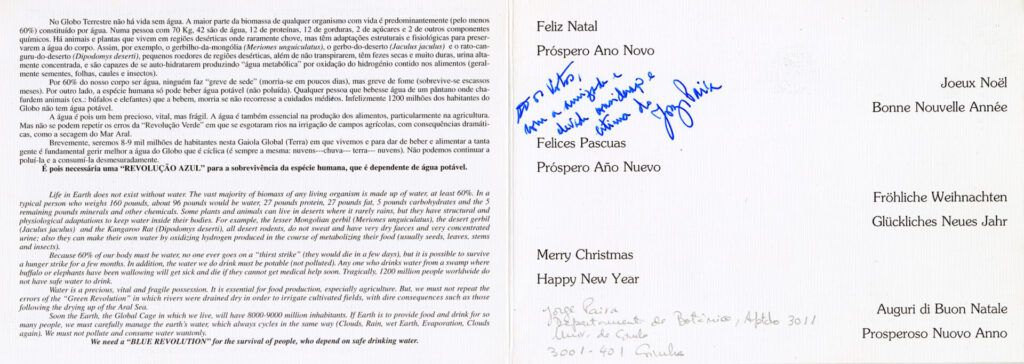 No Globo Terrestre não há vida sem água. A maior parte da biomassa de qualquer organismo com vida é predominantemente (pelo menos
60%) constituído por água. Numa pessoa com 70 Kg, 42 são de água, 12 de proteínas, 12 de gorduras, 2 de açucares e 2 de outros componentes
químicos. Há animais e plantas que vivem em regiões desérticas onde raramente chove, mas têm adaptações estruturais e fisiológicas para preser-
varem a água do corpo. Assim, por exemplo, o gerbilho-da-mongólia (Meriones unguiculatus), o gerbo-do-deserto (Jaculus jaculus) e o rato-can-
guru-do-deserto (Dipodomys deserti), pequenos roedores de regiões desérticas, além de não transpirarem, têm fezes secas e muito duras, urina alta-
mente concentrada, e são capazes de se auto-hidratarem produzindo "água metabólica" por oxidação do hidrogénio contido nos alimentos (geral-
mente sementes, folhas, caules e insectos).
Por 60% do nosso corpo ser água, ninguém faz "greve de sede" (morria-se em poucos dias), mas greve de fome (sobrevive-se escassos
meses). Por outro lado, a espécie humana só pode beber água potável (não poluída). Qualquer pessoa que bebesse água de um pântano onde cha-
furdem animais (ex.: búfalos e elefantes) que a bebem, morria se não recorresse a cuidados médicos. Infelizmente 1200 milhões dos habitantes do
Globo não tem água potável.
A água é pois um bem precioso, vital, mas frágil. A água é também essencial na produção dos alimentos, particularmente na agricultura.
Mas não se podem repetir os erros da "Revolução Verde" em que se esgotaram rios na irrigação de campos agrícolas, com consequências dramáti-
cas, como a secagem do Mar Aral.
Brevemente, seremos 8-9 mil milhões de habitantes nesta Gaiola Global (Terra) em que vivemos e para dar de beber e alimentar a tanta
gente é fundamental gerir melhor a água do Globo que é cíclica (é sempre a mesma: nuvens---chuva--- terra--- nuvens). Não podemos continuar a
poluí-la e a consumí-la desmesuradamente.
É pois necessária uma "REVOLUÇÃO AZUL" para a sobrevivência da espécie humana, que é dependente de água potável.
Life in Earth does not exist without water. The vast majority of biomass of any living organism is made up of water, at least 60%. In a
typical person who weighs 160 pounds, about 96 pounds would be water, 27 pounds protein, 27 pounds fat, 5 pounds carbohydrates and the 5
remaining pounds minerals and other chemicals. Some plants and animals can live in deserts where it rarely rains, but they have structural and
physiological adaptations to keep water inside their bodies. For example, the lesser Mongolian gerbil (Meriones unguiculatus), the desert gerbil
(Jaculus jaculus) and the Kangaroo Rat (Dipodomys deserti), all desert rodents, do not sweat and have very dry faeces and very concentrated
urine; also they can make their own water by oxidizing hydrogen produced in the course of metabolizing their food (usually seeds, leaves, stems
and insects).
Because 60% of our body must be water, no one ever goes on a "thirst strike" (they would die in a few days), but it is possible to survive
a hunger strike for a few months. In addition, the water we do drink must be potable (not polluted). Any one who drinks water from a swamp where
buffalo or elephants have been wallowing will get sick and die if they cannot get medical help soon. Tragically, 1200 million people worldwide do
not have safe water to drink.
Water is a precious, vital and fragile possession. It is essential for food production, especially agriculture. But, we must not repeat the
errors of the "Green Revolution" in which rivers were drained dry in order to irrigate cultivated fields, with dire consequences such as those
following the drying up of the Aral Sea.
Soon the Earth, the Global Cage in which we live, will have 8000-9000 million inhabitants. If Earth is to provide food and drink for so
many people, we must carefully manage the earth's water, which always cycles in the same way (Clouds, Rain, wet Earth, Evaporation, Clouds
again). We must not pollute and consume water wantonly.
We need a "BLUE REVOLUTION" for the survival of people, who depend on safe drinking water.
Feliz Natal
Próspero Ano Novo
Joeux Noël
Bonne Nouvelle Année
com a amizade e
estima de
Jorge Paiva
Felices Pascuas
Próspero Año Nuevo
Fröhliche Weihnachten
Glückliches Neues Jahr
Merry Christmas
Happy New Year
Jorge Paiva
Departamento de Botânica, Aptdo 3011
Univ. de
3001-401
Auguri di Buon Natale
Prosperoso Nuovo Anno